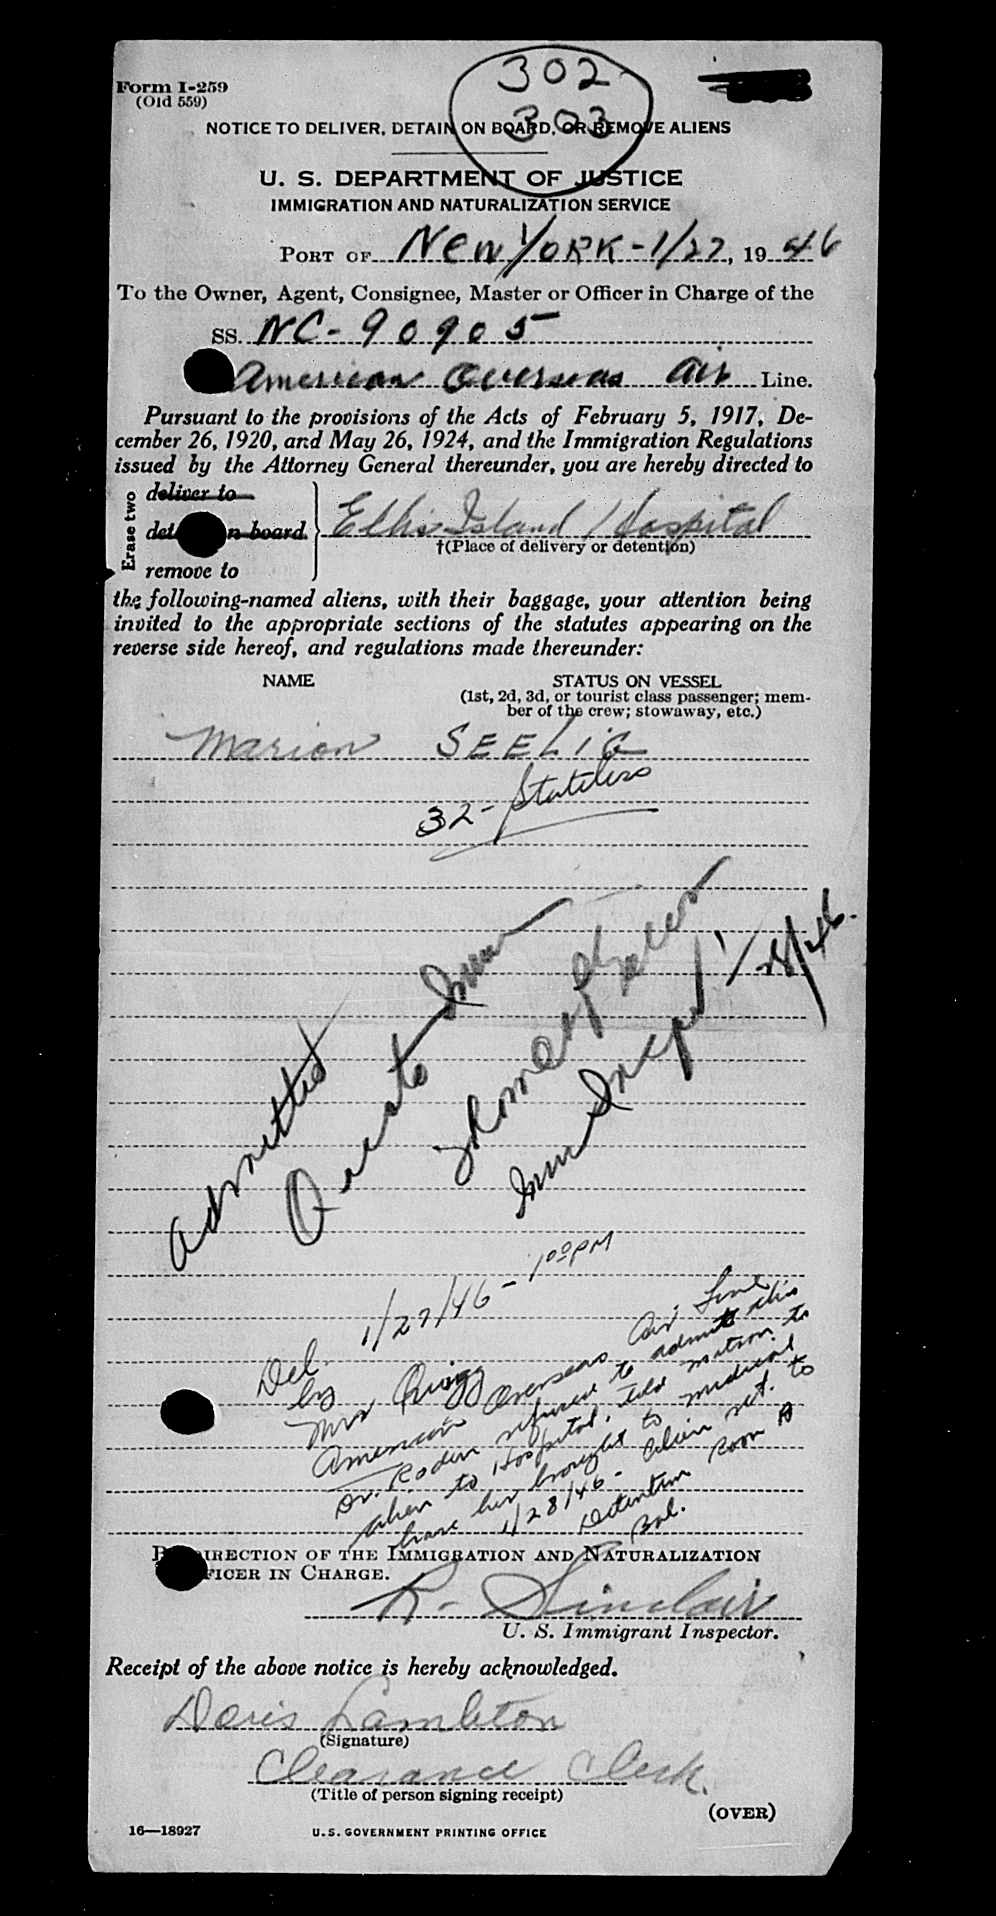 302
303
Form I-259
(Old 559)
NOTICE TO DELIVER, DETAIN ON BOARD, OR REMOVE ALIENS
U. S. DEPARTMENT OF JUSTICE
IMMIGRATION AND NATURALIZATION SERVICE
PORT OF New York - 1/27, 1946
To the Owner, Agent, Consignee, Master or Officer in Charge of the
SS. NC-90905
American Overseas Air Line.
Pursuant to the provisions of the Acts of February 5, 1917, De-
cember 26, 1920, and May 26, 1924, and the Immigration Regulations
issued by the Attorney General thereunder, you are hereby directed to
Erase two
deliver to
det n board
remove to
Ellis Island / Hospital
†(Place of delivery or detention)
the following-named aliens, with their baggage, your attention being
invited to the appropriate sections of the statutes appearing on the
reverse side hereof, and regulations made thereunder:
NAME
STATUS ON VESSEL
(1st, 2d, 3d, or tourist class passenger; mem-
ber of the crew; stowaway, etc.)
Marion SEELIG
32 - Stateless
Admitted
Imm
Imm Inspr 1/28/46.
Del. 1/27/46 - 1 00 PM
by
Mrs
American Overseas Air Line
Dr. refused to admit this
alien to Hospital, told matron to
have her brought to medical
1/28/46 - Alien ret. to
Detention Room A
R. Sinclair
IRECTION OF THE IMMIGRATION AND NATURALIZATION
FICER IN CHARGE.
U. S. Immigrant Inspector.
Receipt of the above notice is hereby acknowledged.
Doris Lambton
(Signature)
Clearance Clerk.
(Title of person signing receipt)
(OVER)
16—18927
U.S. GOVERNMENT PRINTING OFFICE